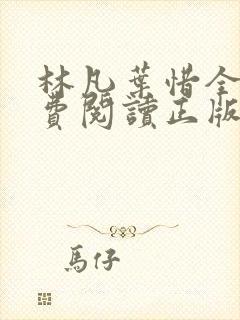 林凡葉惜全
費閱讀正版
馬仔